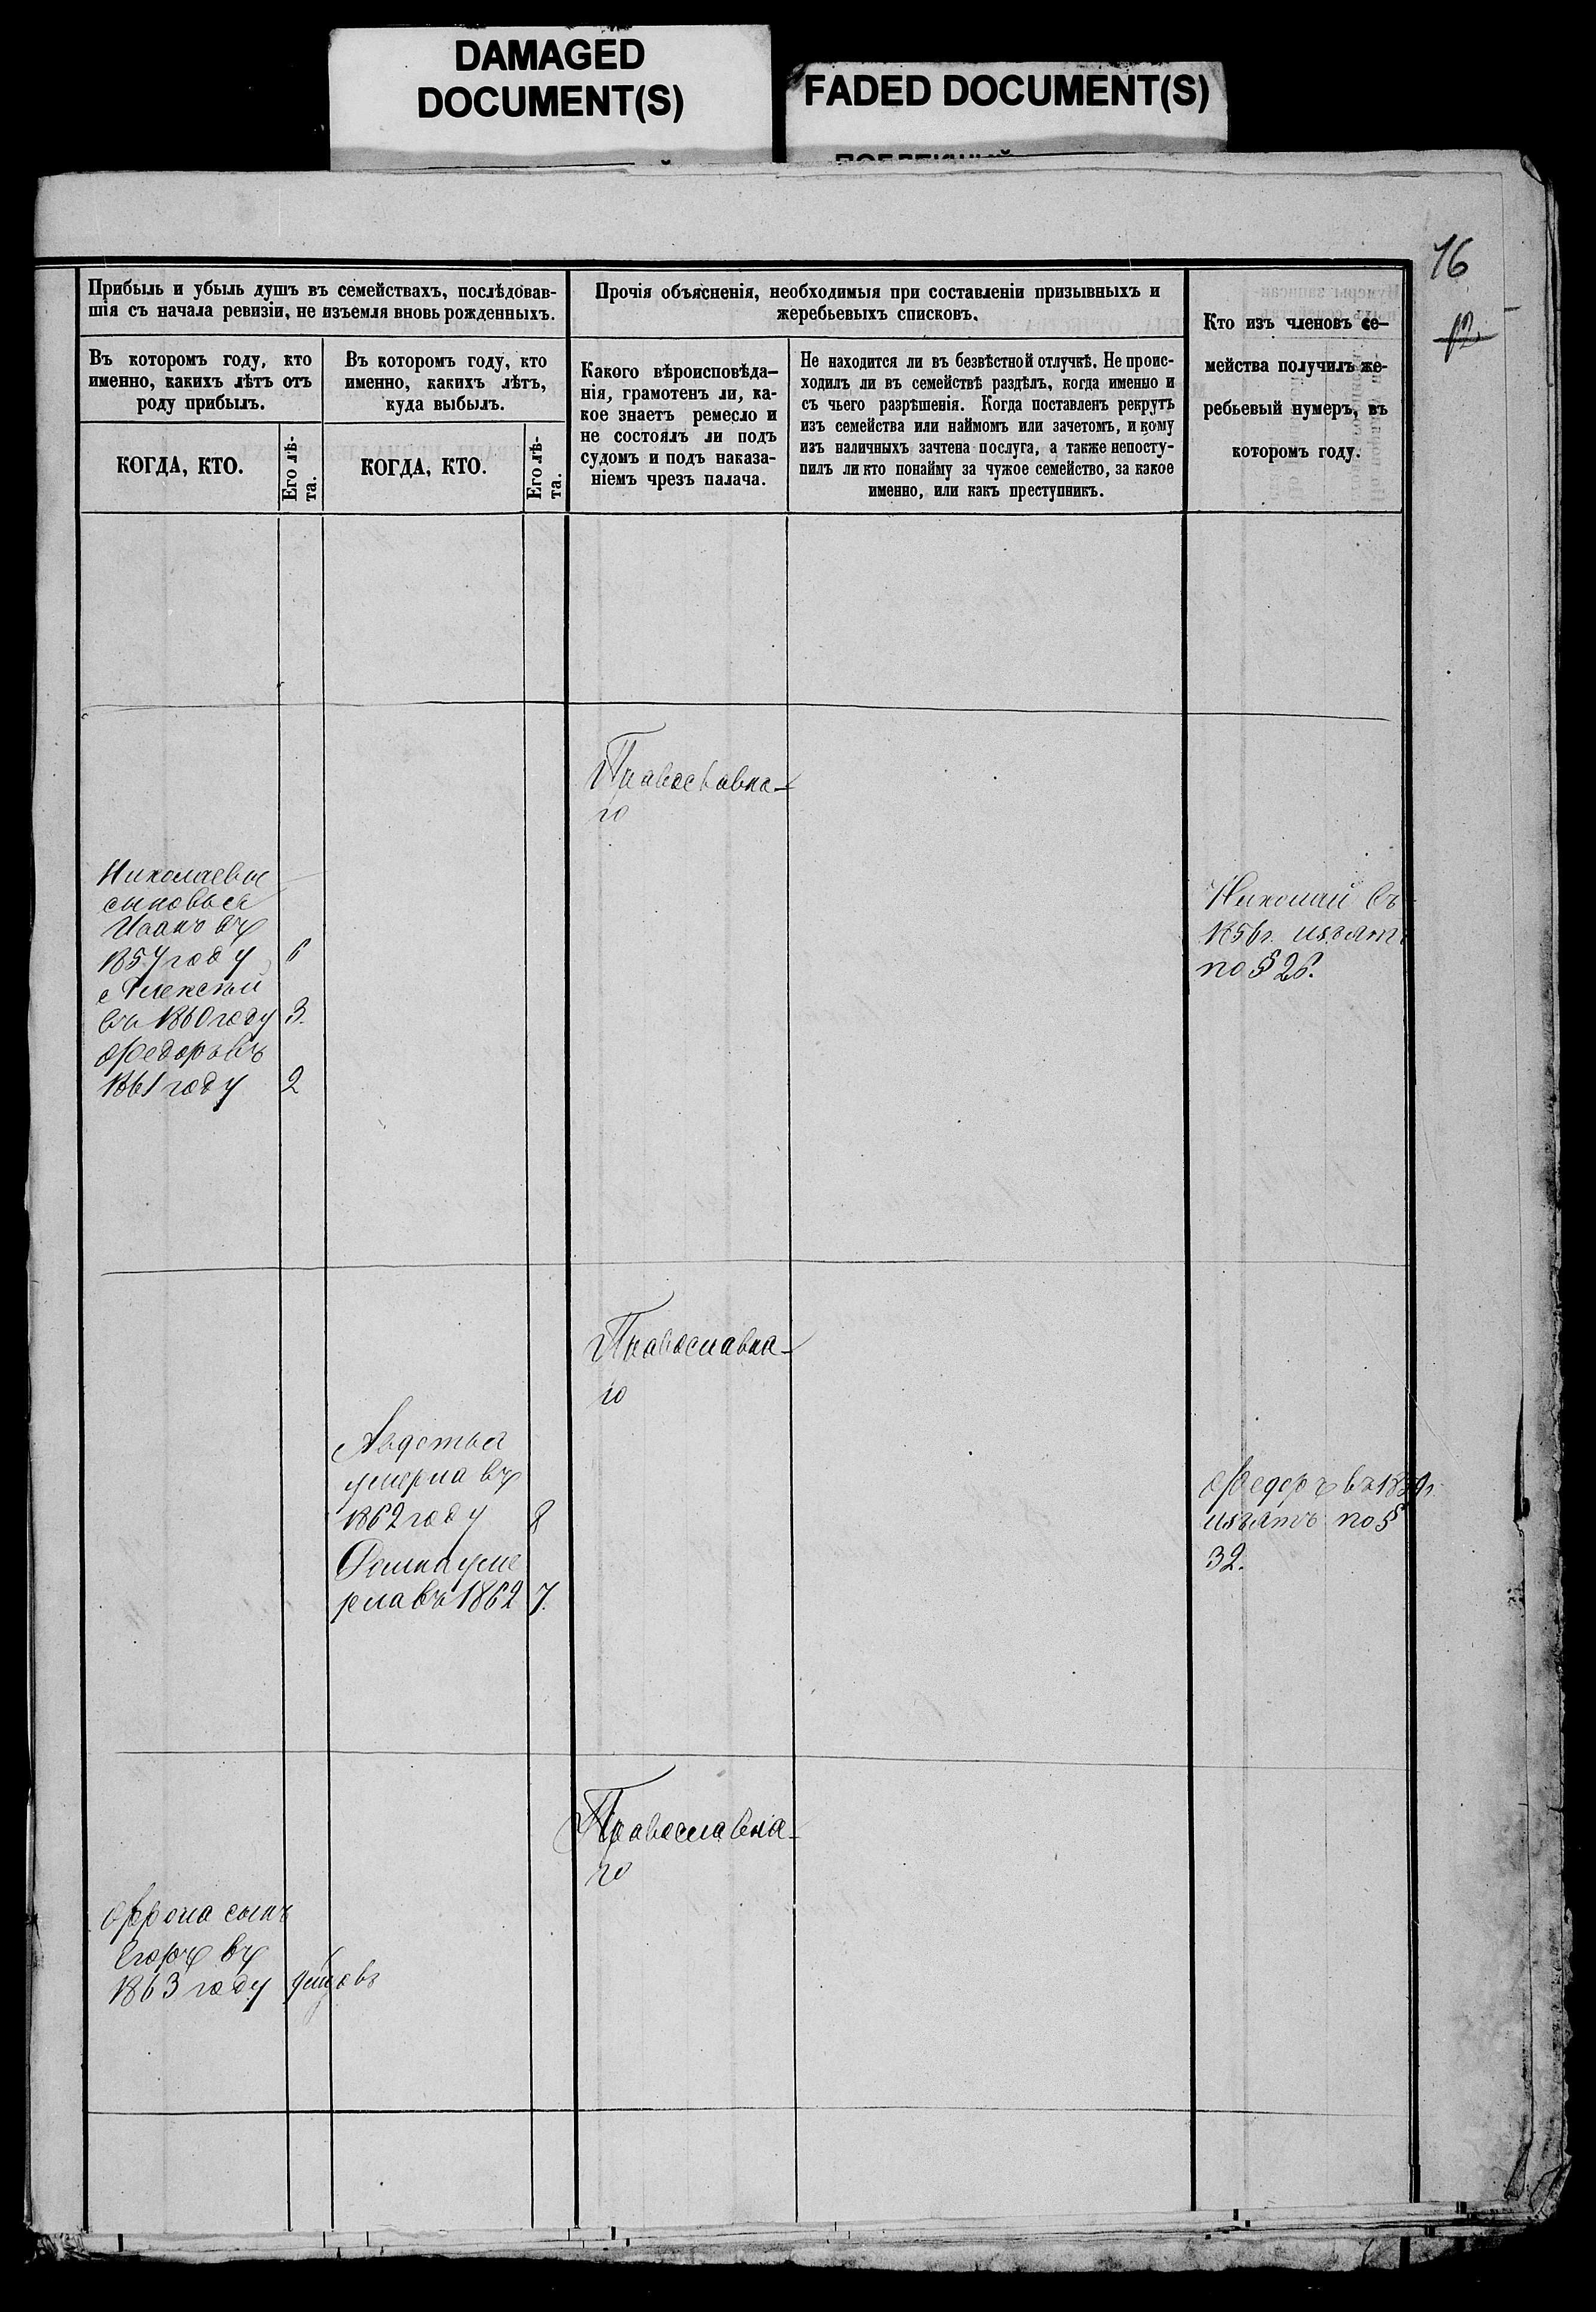 DAMAGED
DOCUMENT(S)
FADED DOCUMENT(S)
16
12
Прибыль и убыль душъ въ семействахъ, послѣдовав-
шія съ начала ревизіи, не изъемля вновь рожденныхъ.
Прочія объясненія, необходимыя при составленіи призывныхъ и
жеребьевыхъ списковъ.
Кто изъ членовъ се-
мейства получилъ же-
ребьевый нумеръ, въ
которомъ году.
Въ которомъ году, кто
именно, какихъ лѣтъ отъ
роду прибылъ.
Въ которомъ году, кто
именно, какихъ лѣтъ,
куда выбылъ.
Какого вѣроисповѣда-
нія, грамотенъ ли, ка-
кое знаетъ ремесло и
не состоялъ ли подъ
судомъ и подъ наказа-
ніемъ чрезъ палача.
Не находится ли въ безвѣстной отлучкѣ. Не проис-
ходилъ ли въ семействѣ раздѣлъ, когда именно и
съ чьего разрѣшенія. Когда поставленъ рекрутъ
изъ семейства или наймомъ или зачетомъ, и кому
изъ наличныхъ зачтена послуга, а также непосту-
пилъ ли кто понайму за чужое семейство, за какое
именно, или какъ преступникъ.
КОГДА, КТО.
Его лѣ-
та.
КОГДА, КТО.
Его лѣ-
та.
Православна-
го
Николаевы
сыновья
Иванъ въ
1857 году 6
Алексѣй
въ 1860 году 3.
Федоръ въ
1861 году 2
Николай въ
1856г. изъятъ
по § 26.
Православна-
го
Авдотья
умерла въ
1862 году 8
умe
рла въ 1862 7.
Федоръ въ 1859г.
изъятъ по §
32.
Православна-
го
сынъ
Егоръ въ
1863 году